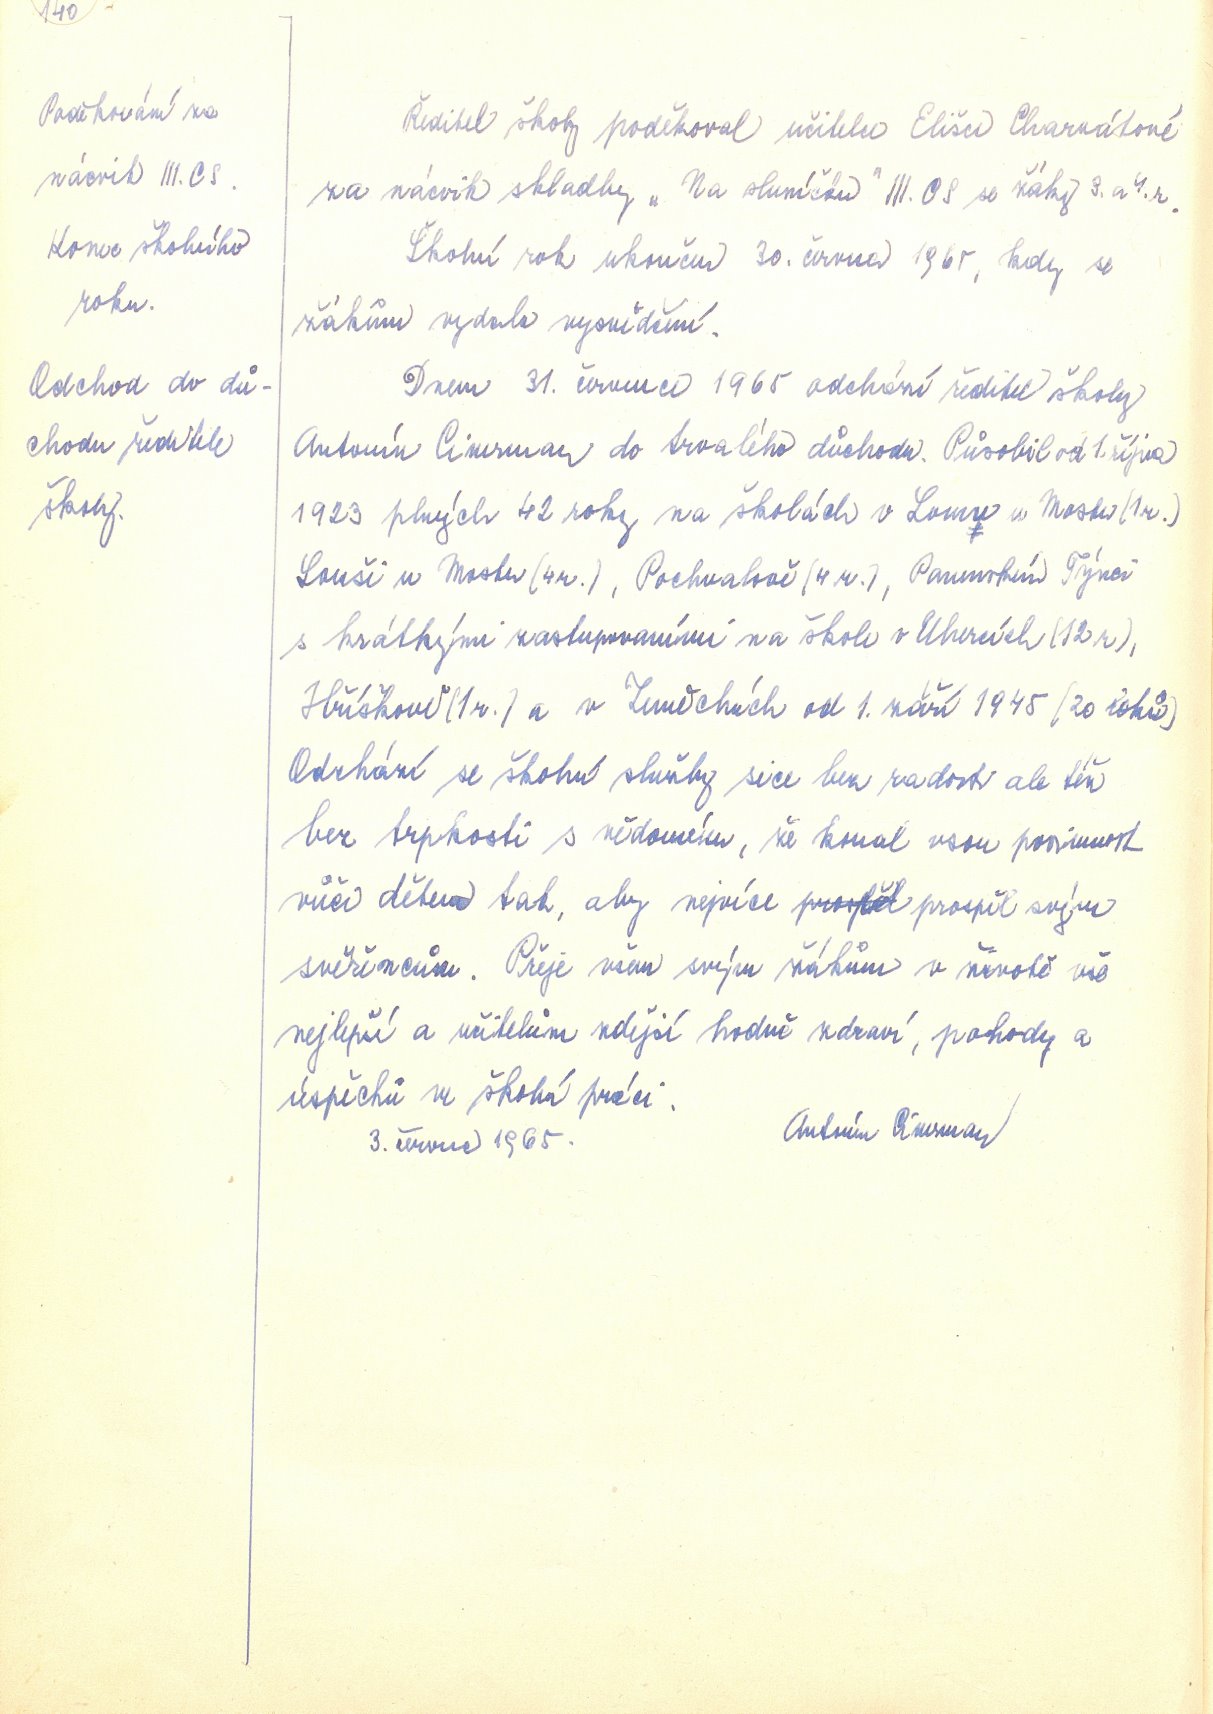 140
Poděkování za
nácvik III. CS.
Konec školního
roku.
Odchod do dů-
chodu ředitele
školy.
Ředitel školy poděkoval učitelce Elišce Charvátové
za nácvik skladby „Na sluníčku" III. CS se žáky 3. a 4. r.
Školní rok ukončen 30. června 1965, kdy se
žákům vydala vysvědčení.
Dnem 31. července 1965 odchází ředitel školy
Antonín Cimrman do trvalého důchodu. Působil od 1. října
1923 plných 42 roky na školách v Lomu u Mostu (1 r.)
Louši u Mostu (4 r.), Pochvalově (4 r.), Panenském Týnci
s krátkými zastupovaními na škole v Uhercích (12 r),
Hříškově (1 r.) a v Zeměchách od 1. září 1945 (20 roků)
Odchází se školní služby sice bez radosti ale též
bez trpkosti s vědomím, že konal vsou povinnost
vůči dětem tak, aby nejvíce prospěl svým
svěřencům. Přeje všem svým žákům v životě vše
nejlepší a učitelům zdejší hodně zdraví, pohody a
úspěchů ve školní práci.
3. července 1965.
Antonín Cimrman